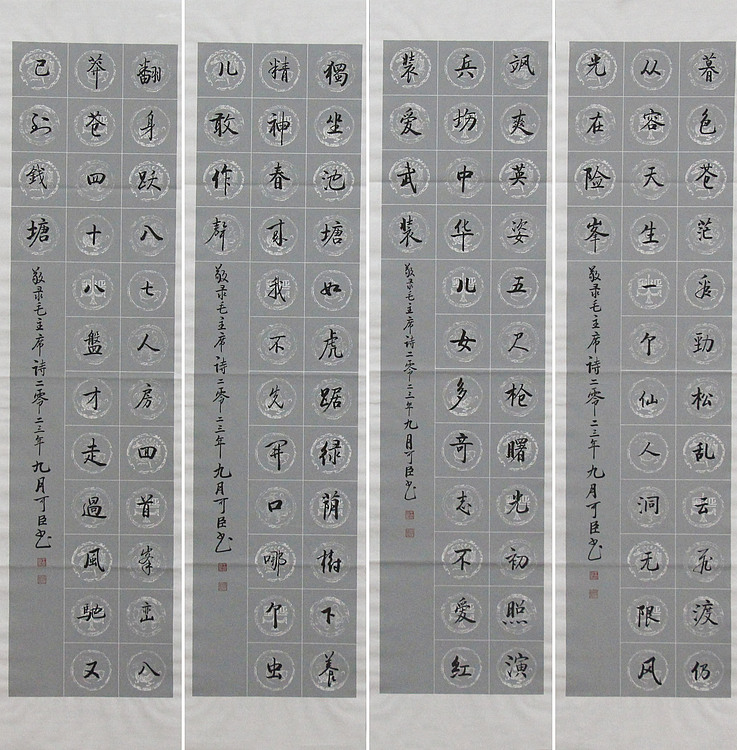 暮色苍茫看勁松乱云飛渡仍
从容天生一个仙人洞无限风
光在险峯
敬录毛主席诗二零二三年九月可臣书
飒爽英姿五尺枪曙光初照演
兵場中华儿女多奇志不爱红
装爱武装
敬录毛主席诗二零二三年九月可臣书
獨坐池塘如虎踞绿荫樹下養
精神春来我不先開口哪个虫
儿敢作聲
敬录毛主席诗二零二三年九月可臣书
翻身跃入七人房回首峯峦入
莽苍四十八盤才走過風馳又
已到錢塘
敬录毛主席诗二零二三年九月可臣书